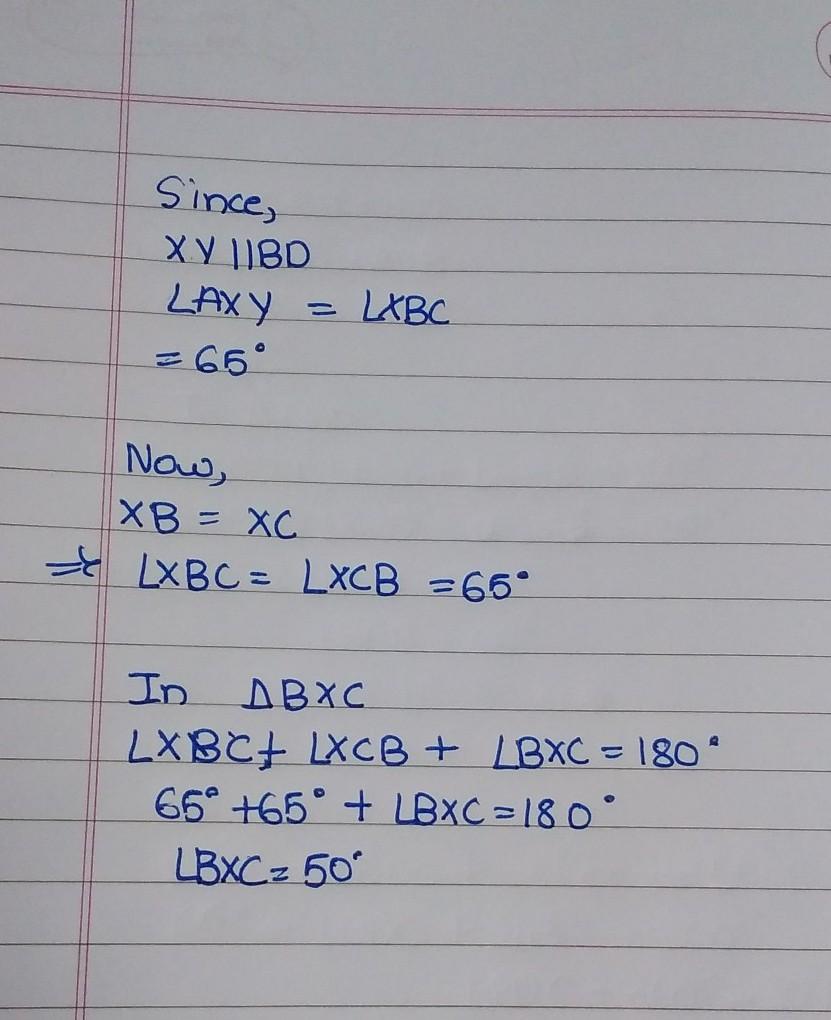 Since,
XY || BD
∠AXY = ∠XBC
= 65°
Now,
XB = XC
⇒ ∠XBC = ∠XCB = 65°
In ΔBXC
∠XBC + ∠XCB + ∠BXC = 180°
65° + 65° + ∠BXC = 180°
∠BXC = 50°